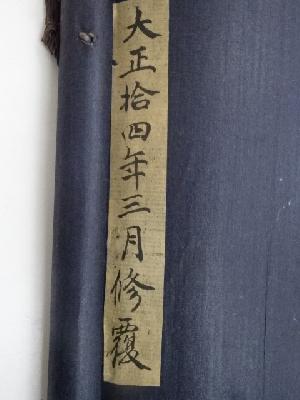 大正拾四年三月修覆